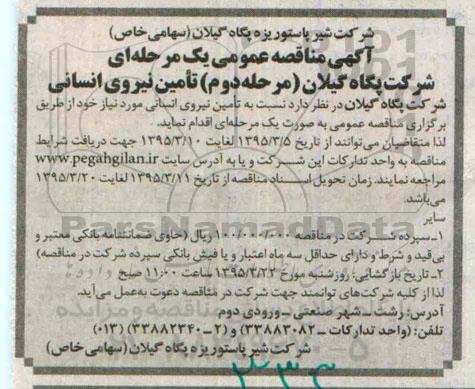 شرکت شیر پاستوریزه پگاه گیلان (سهامی خاص)
آگهی مناقصه عمومی یک مرحله‌ای
شرکت پگاه گیلان (مرحله دوم) تأمین نیروی انسانی
شرکت پگاه گیلان در نظر دارد نسبت به تأمین نیروی انسانی مورد نیاز خود از طریق
برگزاری مناقصه عمومی به صورت یک مرحله‌ای اقدام نماید.
لذا متقاضیان می‌توانند از تاریخ ۱۳۹۵/۳/۵ لغایت ۱۳۹۵/۳/۱۰ جهت دریافت شرایط
مناقصه به واحد تدارکات این شرکت و یا به آدرس سایت www.pegahgilan.ir
مراجعه نمایند. زمان تحویل اسناد مناقصه از تاریخ ۱۳۹۵/۳/۱۱ لغایت ۱۳۹۵/۳/۲۰
می‌باشد.
سایر
۱ـ سپرده شرکت در مناقصه ۱۰۰/۰۰۰/۰۰۰ ریال (حاوی ضمانتنامه بانکی معتبر و
بی‌قید و شرط و دارای حداقل سه ماه اعتبار و یا فیش بانکی سپرده شرکت در مناقصه)
۲ـ تاریخ بازگشایی: روز شنبه مورخ ۱۳۹۵/۳/۲۲ ساعت ۱۱:۰۰ صبح
لذا از کلیه شرکت‌های توانمند جهت شرکت در مناقصه دعوت به‌عمل می‌آید.
آدرس: رشت ـ شهر صنعتی ـ ورودی دوم
تلفن: (واحد تدارکات ـ ۳۳۸۸۳۰۸۲) و (۲ـ۳۳۸۸۲۳۴۰) (۰۱۳)
شرکت شیر پاستوریزه پگاه گیلان (سهامی خاص)
ParsNamadData